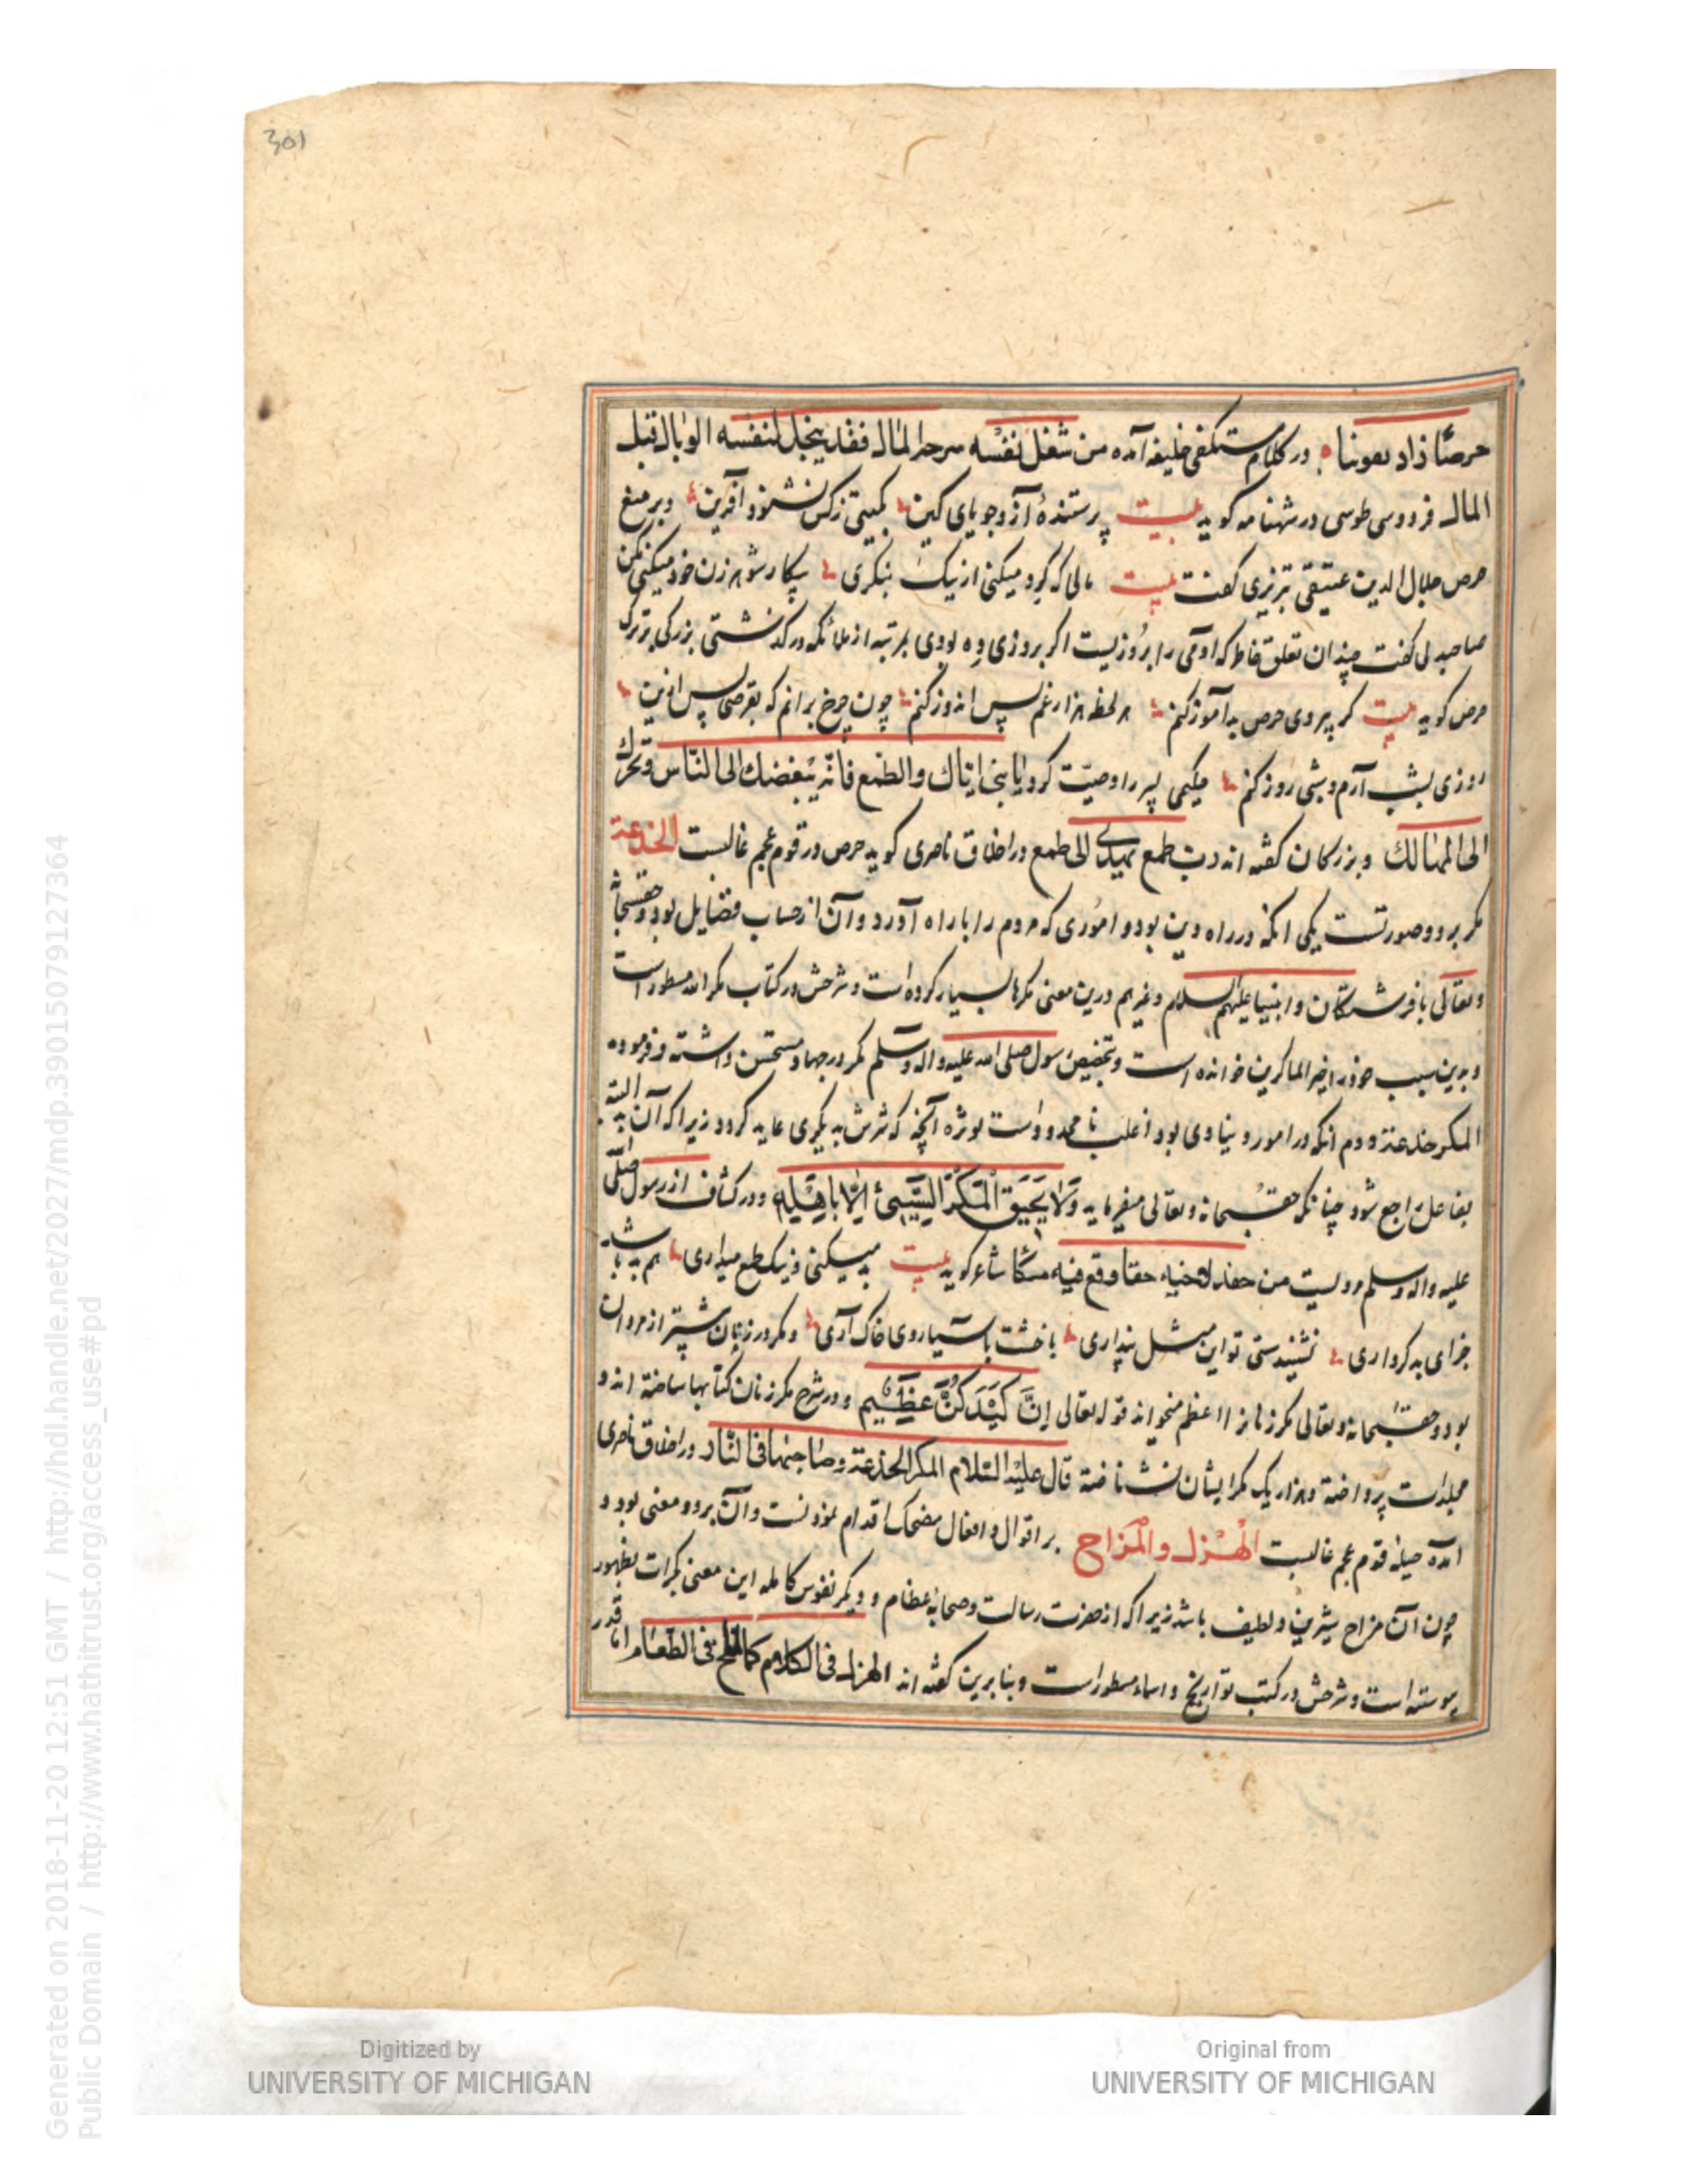 301
حرصًا زاد هوننا در کلام مستکفی خلیفه آمده من شغل نفسه بجد المال فقد یجعل لنفسه الوبال قبل
المال فردوسی طوسی در شهنامه کوید بیت پرستندهٔ آز و جویای کین بگیتی ز کس نشنود آفرین و بر منع
حرص جلال الدین عتیقی تبریزی کفت بیت مالی که کرد میکنی از نیک بنگری بیکار شوهر زن خود میکنی مکن
صاحبدلی کفت چندان تعلق خاطر که آدمی را بروزیست اکر بروزی ده بودی بمرتبه از ملائکه درکذشتی بزرکی بر ترک
حرص کوید بیت کر پیروی حرص بدآموز کنم هر لحظه هزار غم پس اندوز کنم چون چرخ برانم که بقرصی پس ازین
روزی بشب آرم و شبی روز کنم حکیمی پسر را وصیت کرد یا بنی ایاک والطمع فانه یبغضک الی الناس و تحرک
الی المهالک و بزرکان کفته اند رب طمع یهدی الی طمع و در اخلاق ناصری کوید حرص در قوم عجم غالبست الخدعة
مکر بر دو صورتست یکی انکه در راه دین بود و اموری که مردم را با راه آورد و آن از حساب فضایل بود و حقسبحانه
و تعالی با فرشتکان و انبیا علیهم السلام و غیرهم درین معنی مکرها بسیار کرده است و شرحش در کتاب مکر الله مسطور است
و بدین سبب خود را خیر الماکرین خوانده است و بتخصیص رسول صلی الله علیه و اله وسلم مکر در جهاد مستحسن داشته و فرموده
المکر خدعة دوم انکه در امور دنیاوی بود اغلب نا محدود است بویژه آنچه که شرش به دیکری عاید کردد زیرا که آن البته
بفاعل راجع شود چنانکه حقسبحانه و تعالی میفرماید وَلَا یَحِیقُ الْمَکْرُ السَّیِّئُ اِلَّا بِاَهْلِهِ و در کشاف از رسول صلی
علیه واله وسلم مرویست من حفر لاخیه وقع فیه منکبا شاعر کوید بیت بد میکنی و نیک طمع میداری هم بد باشد
جزای بدکرداری نشنیدستی تو این مثل پنداری با خشت بآسیا روی خاک آری و مکر در زنان بیشتر از مردان
بود و حقسبحانه و تعالی مکر زنانرا اعظم میخواند قوله تعالی اِنَّ کَیْدَکُنَّ عَظِیم و در شرح مکر زنان کتابها ساخته اند و
مجلدات پرداخته و هزار یک مکر ایشان نشناخته قال علیه السلام المکر الخدعة و صاحبهما فی النار در اخلاق ناصری
امده حیله قوم عجم غالبست الهزل والمزاح بر اقوال و افعال مضحک اقدام نمودنست و آن بر دو معنی بود و
چون آن مزاح شیرین و لطیف باشد زیرا که از حضرت رسالت و صحابه عظام و دیکر نفوس کامله این معنی بکرات بظهور
پیوسته است و شرحش در کتب تواریخ و اسماء مسطور است و بنابرین کفته اند الهزل فی الکلام کالملح فی الطعام اما قدر
Digitized by
UNIVERSITY OF MICHIGAN
Original from
UNIVERSITY OF MICHIGAN
Generated on 2018-11-20 12:51 GMT / http://hdl.handle.net/2027/mdp.39015079127364
Public Domain / http://www.hathitrust.org/access_use#pd